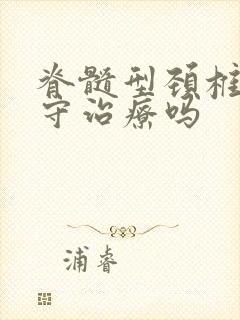 脊髓型颈椎
守治疗吗
浦睿